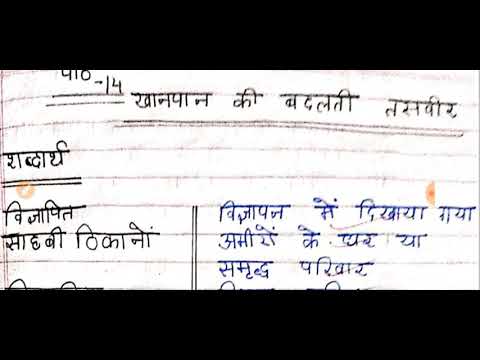 पाठ-14
खानपान की बदलती तसवीर
शब्दार्थ
विज्ञापित विज्ञापन में दिखाया गया
साहबी ठिकानों अमीरों के घर या
समृद्ध परिवार